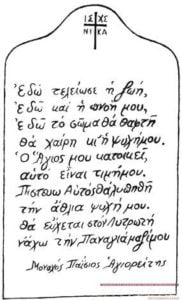 ΙΣ ΧΣ
ΝΙ ΚΑ
Ἐδῶ τελείωσε ἡ ζωή,
ἐδῶ καί ἡ πνοή μου,
ἐδῶ τό σῶμα θά θαφτῆ
θά χαίρη κι ἡ ψυχή μου.
Ὁ Ἅγιός μου κατοικεῖ,
αὐτό εἶναι τιμή μου.
Πιστεύω Αὐτός θά λυπηθῆ
τήν ἄθλια ψυχή μου.
Θά εὔχεται στόν Λυτρωτή
νἄχω τήν Παναγιά μαζί μου
Μοναχός Παΐσιος Ἁγιορείτης